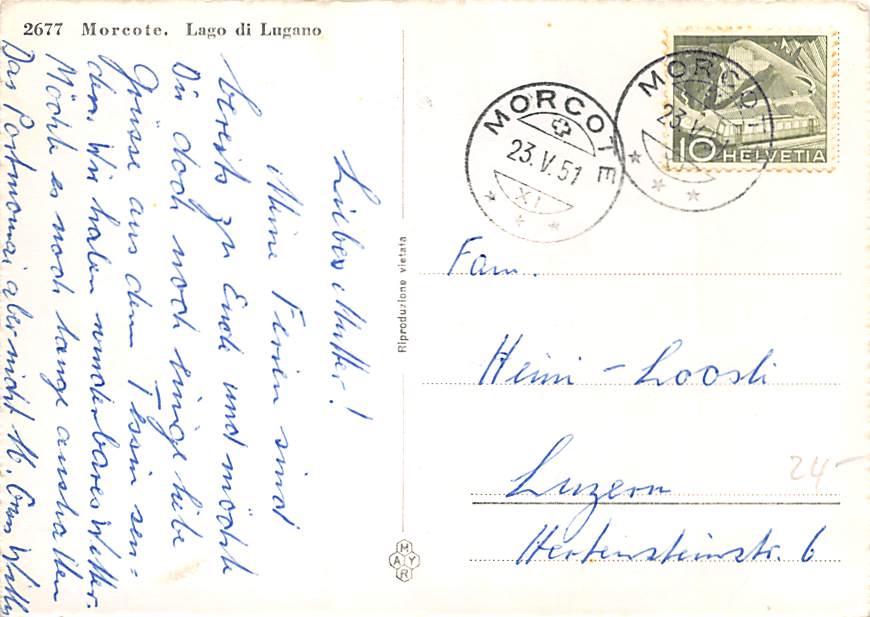 2677 Morcote. Lago di Lugano
Lieber Mutter!
Meine Ferien sind
bereits zu Ende und möchte
Dir doch noch einige liebe
Grüsse aus dem Tessin sen-
den. Wir haben wunderbares Wetter.
Möchte es noch lange aushalten
Das Portmonai aber nicht M. Willy
Riproduzione vietata
MAYR
MORCOTE
23.V.51
XI
MORCOTE
23.V.51
10 HELVETIA
Fam.
Heini-Loosli
Luzern
Hertensteinstr. 6
24-